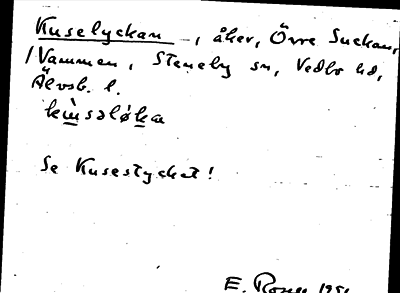 Kuselyckan, åker, Övre Suckan,
Vammen, Steneby sn, Vedbo hd,
Älvsb. l.
Se Kusestycket!
E. Rosell